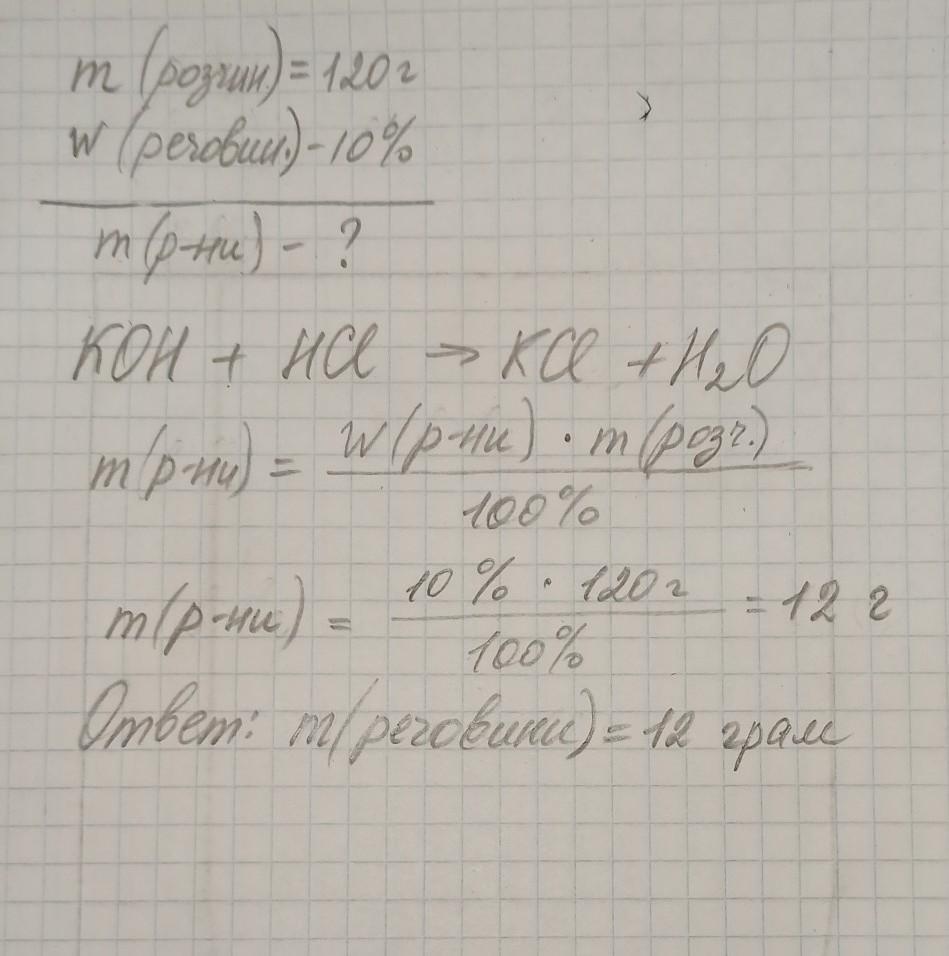 m (розчин.) = 120 г
W (речовин.) - 10%
m (р-ни) - ?
KOH + HCl → KCl + H₂O
m (р-ни) = W (р-ни) · m (розч.)
100%
m (р-ни) = 10 % · 120 г = 12 г
100%
Ответ: m (речовини) = 12 грам